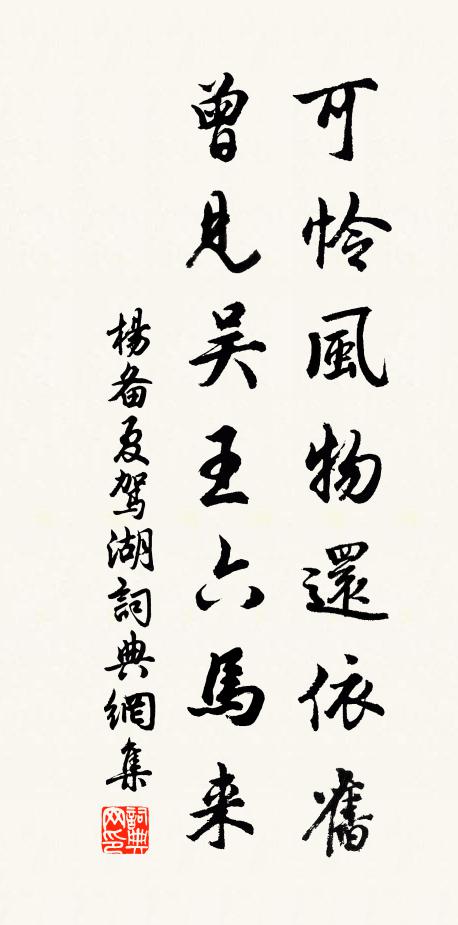 可怜風物還依舊
曾見吴王六馬来
楊备夏驾湖詞典網集
詞典网印